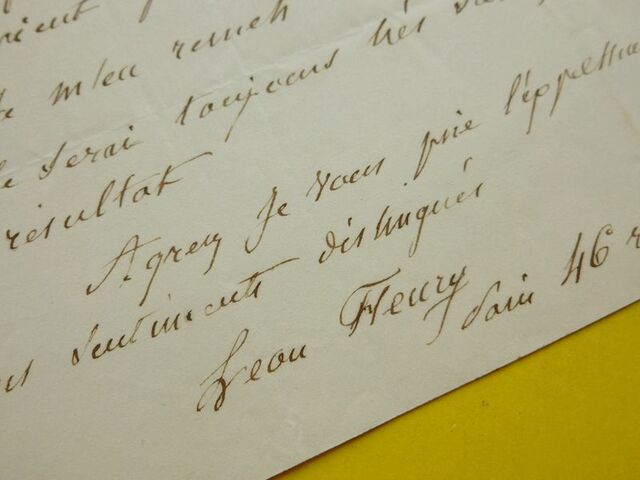 m'en
serai toujours très
résultat
Agréez je vous prie l'expression
sentiments distingués
Leon Fleury
46 r